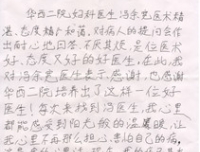 华西二院妇科医生冯余宽医术精
湛，态度蔼和蔼，对病人的提问会作
出耐心地回答，不厌其烦，是位医术
好，态度又好的好医生，在此，感
对冯余宽医生表示，感谢，也感谢
华西二院培养出了这样一位好
医生！每次来找到冯医生，我心里
都能感受到阳光般的温馨暖，让
我心里不再那么担心，害怕自己的病，